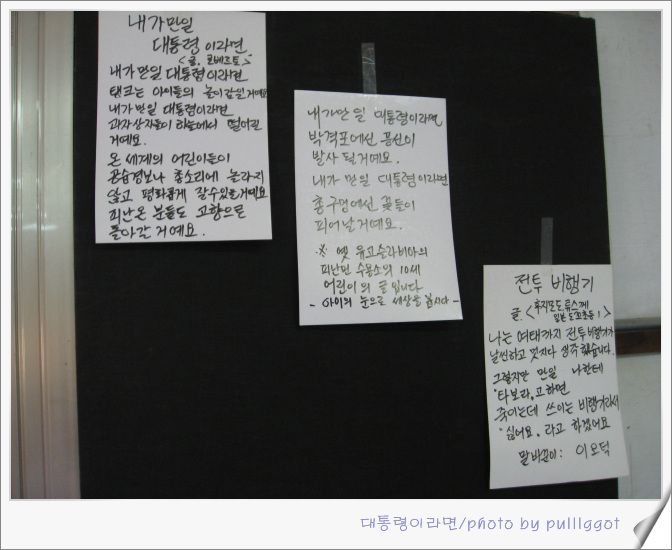 내가 만일
대통령 이라면
<글. 로베르토>
내가 만일 대통령 이라면
탱크는 아이들의 놀이감일 거예요
내가 만일 대통령 이라면
과자상자들이 하늘에서 떨어질
거예요.
온 세계의 어린이들이
공습경보나 총소리에 놀라지
않고 평화롭게 잘수있을거예요
피난온 분들도 고향으로
돌아갈 거예요.
내가 만일 대통령이라면
박격포에선 풍선이
발사 될거예요.
내가 만일 대통령이라면
총구멍에선 꽃들이
피어날거예요.
※ 옛 유고슬라비아의
피난민 수용소의 10세
어린이의 글입니다
- 아이의 눈으로 세상을 봅시다 -
전투 비행기
글.
나는 여태까지 전투비행기가
날씬하고 멋지다 생각했습니다.
그렇지만 만일 나한테
"타보라"고 하면
죽이는데 쓰이는 비행기라서
"싫어요. 라고 하겠어요
말바꾼이: 이오덕
대통령이라면/photo by pulllggot